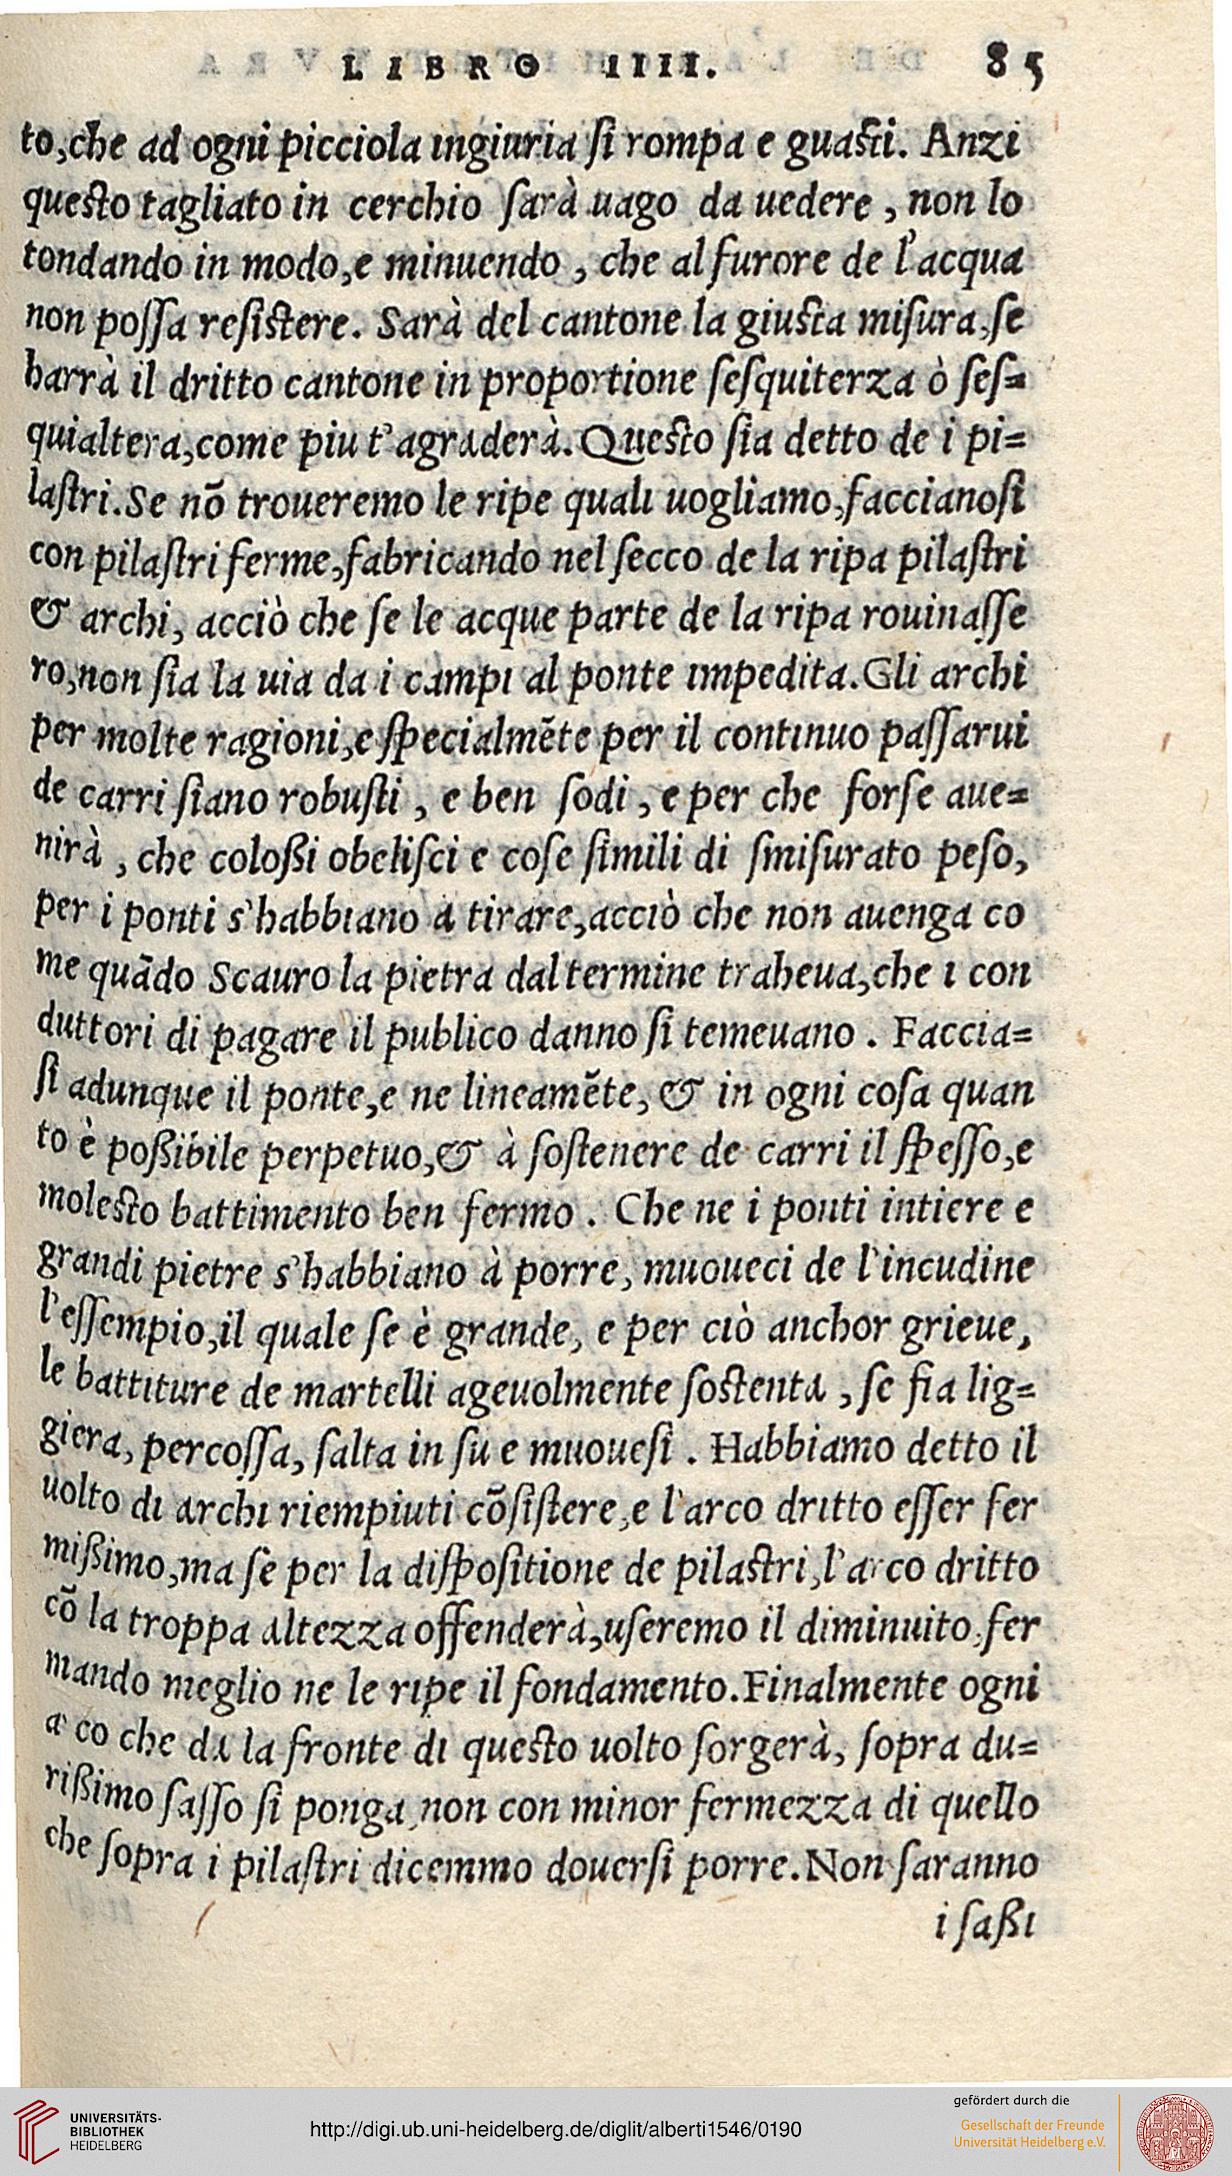 LIBRO IIII. 85
to,che ad ogni picciola ingiuria ſi rompa e guaſti. Anzi
queſto tagliato in cerchio ſarà uago da uedere , non lo
tondando in modo,e minuendo , che al furore de l'acqua
non poſſa reſiſtere. Sarà del cantone la giuſta miſura,ſe
harrà il dritto cantone in proportione ſeſquiterza ò ſeſ=
quialtera,come piu t'agraderà. Queſto ſia detto de i pi=
laſtri. Se nõ troueremo le ripe quali uogliamo,faccianoſi
con pilaſtri ferme,fabricando nel ſecco de la ripa pilaſtri
& archi, acciò che ſe le acque parte de la ripa rouinaſſe
ro,non ſia la uia da i campi al ponte impedita. Gli archi
per molte ragioni,e ſpecialmẽte per il continuo paſſarui
de carri ſiano robuſti , e ben ſodi , e per che forſe aue=
nirà , che coloßi obeliſci e coſe ſimili di ſmiſurato peſo,
per i ponti s'habbiano a tirare,acciò che non auenga co
me quãdo Scauro la pietra dal termine traheua,che i con
duttori di pagare il publico danno ſi temeuano . Faccia=
ſi adunque il ponte,e ne lineamẽte, & in ogni coſa quan
to è poßibile perpetuo,& à ſoſtenere de carri il ſpeſſo,e
moleſto battimento ben fermo . Che ne i ponti intiere e
grandi pietre s'habbiano à porre, muoueci de l'incudine
l'eſſempio,il quale ſe è grande, e per ciò anchor grieue,
le battiture de martelli ageuolmente ſoſtenta , ſe fia lig=
giera, percoſſa, ſalta in ſu e muoueſi . Habbiamo detto il
uolto di archi riempiuti cõſiſtere,e l'arco dritto eſſer fer
mißimo,ma ſe per la diſpoſitione de pilaſtri,l'arco dritto
cõ la troppa altezza offenderà,uſeremo il diminuito,fer
mando meglio ne le ripe il fondamento. Finalmente ogni
a co che da la fronte di queſto uolto ſorgerà, ſopra du=
rißimo ſaſſo ſi ponga,non con minor fermezza di quello
che ſopra i pilaſtri dicemmo douerſi porre. Non ſaranno
i ſaßi
UNIVERSITÄTS-
BIBLIOTHEK
HEIDELBERG
http://digi.ub.uni-heidelberg.de/diglit/alberti1546/0190
gefördert durch die
Gesellschaft der Freunde
Universität Heidelberg e.V.